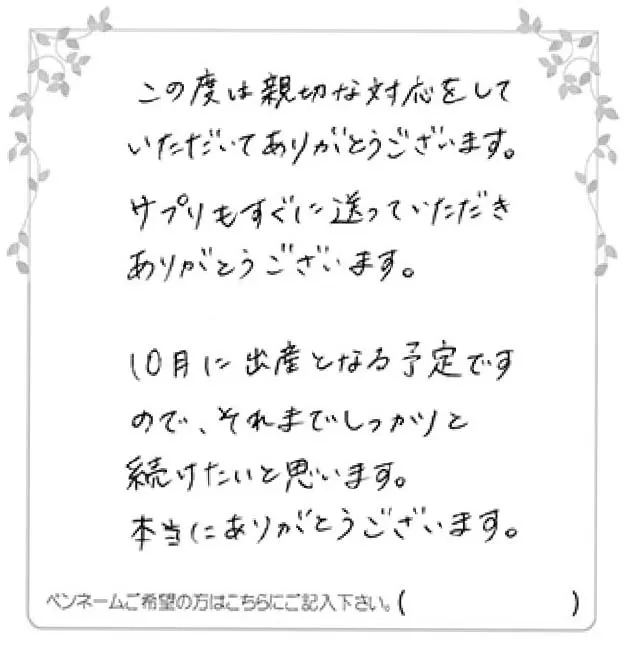 この度は親切な対応をして
いただいてありがとうございます。
サプリもすぐに送っていただき
ありがとうございます。
10月に出産となる予定です
ので、それまでしっかりと
続けたいと思います。
本当にありがとうございます。
ペンネームご希望の方はこちらにご記入下さい。( )